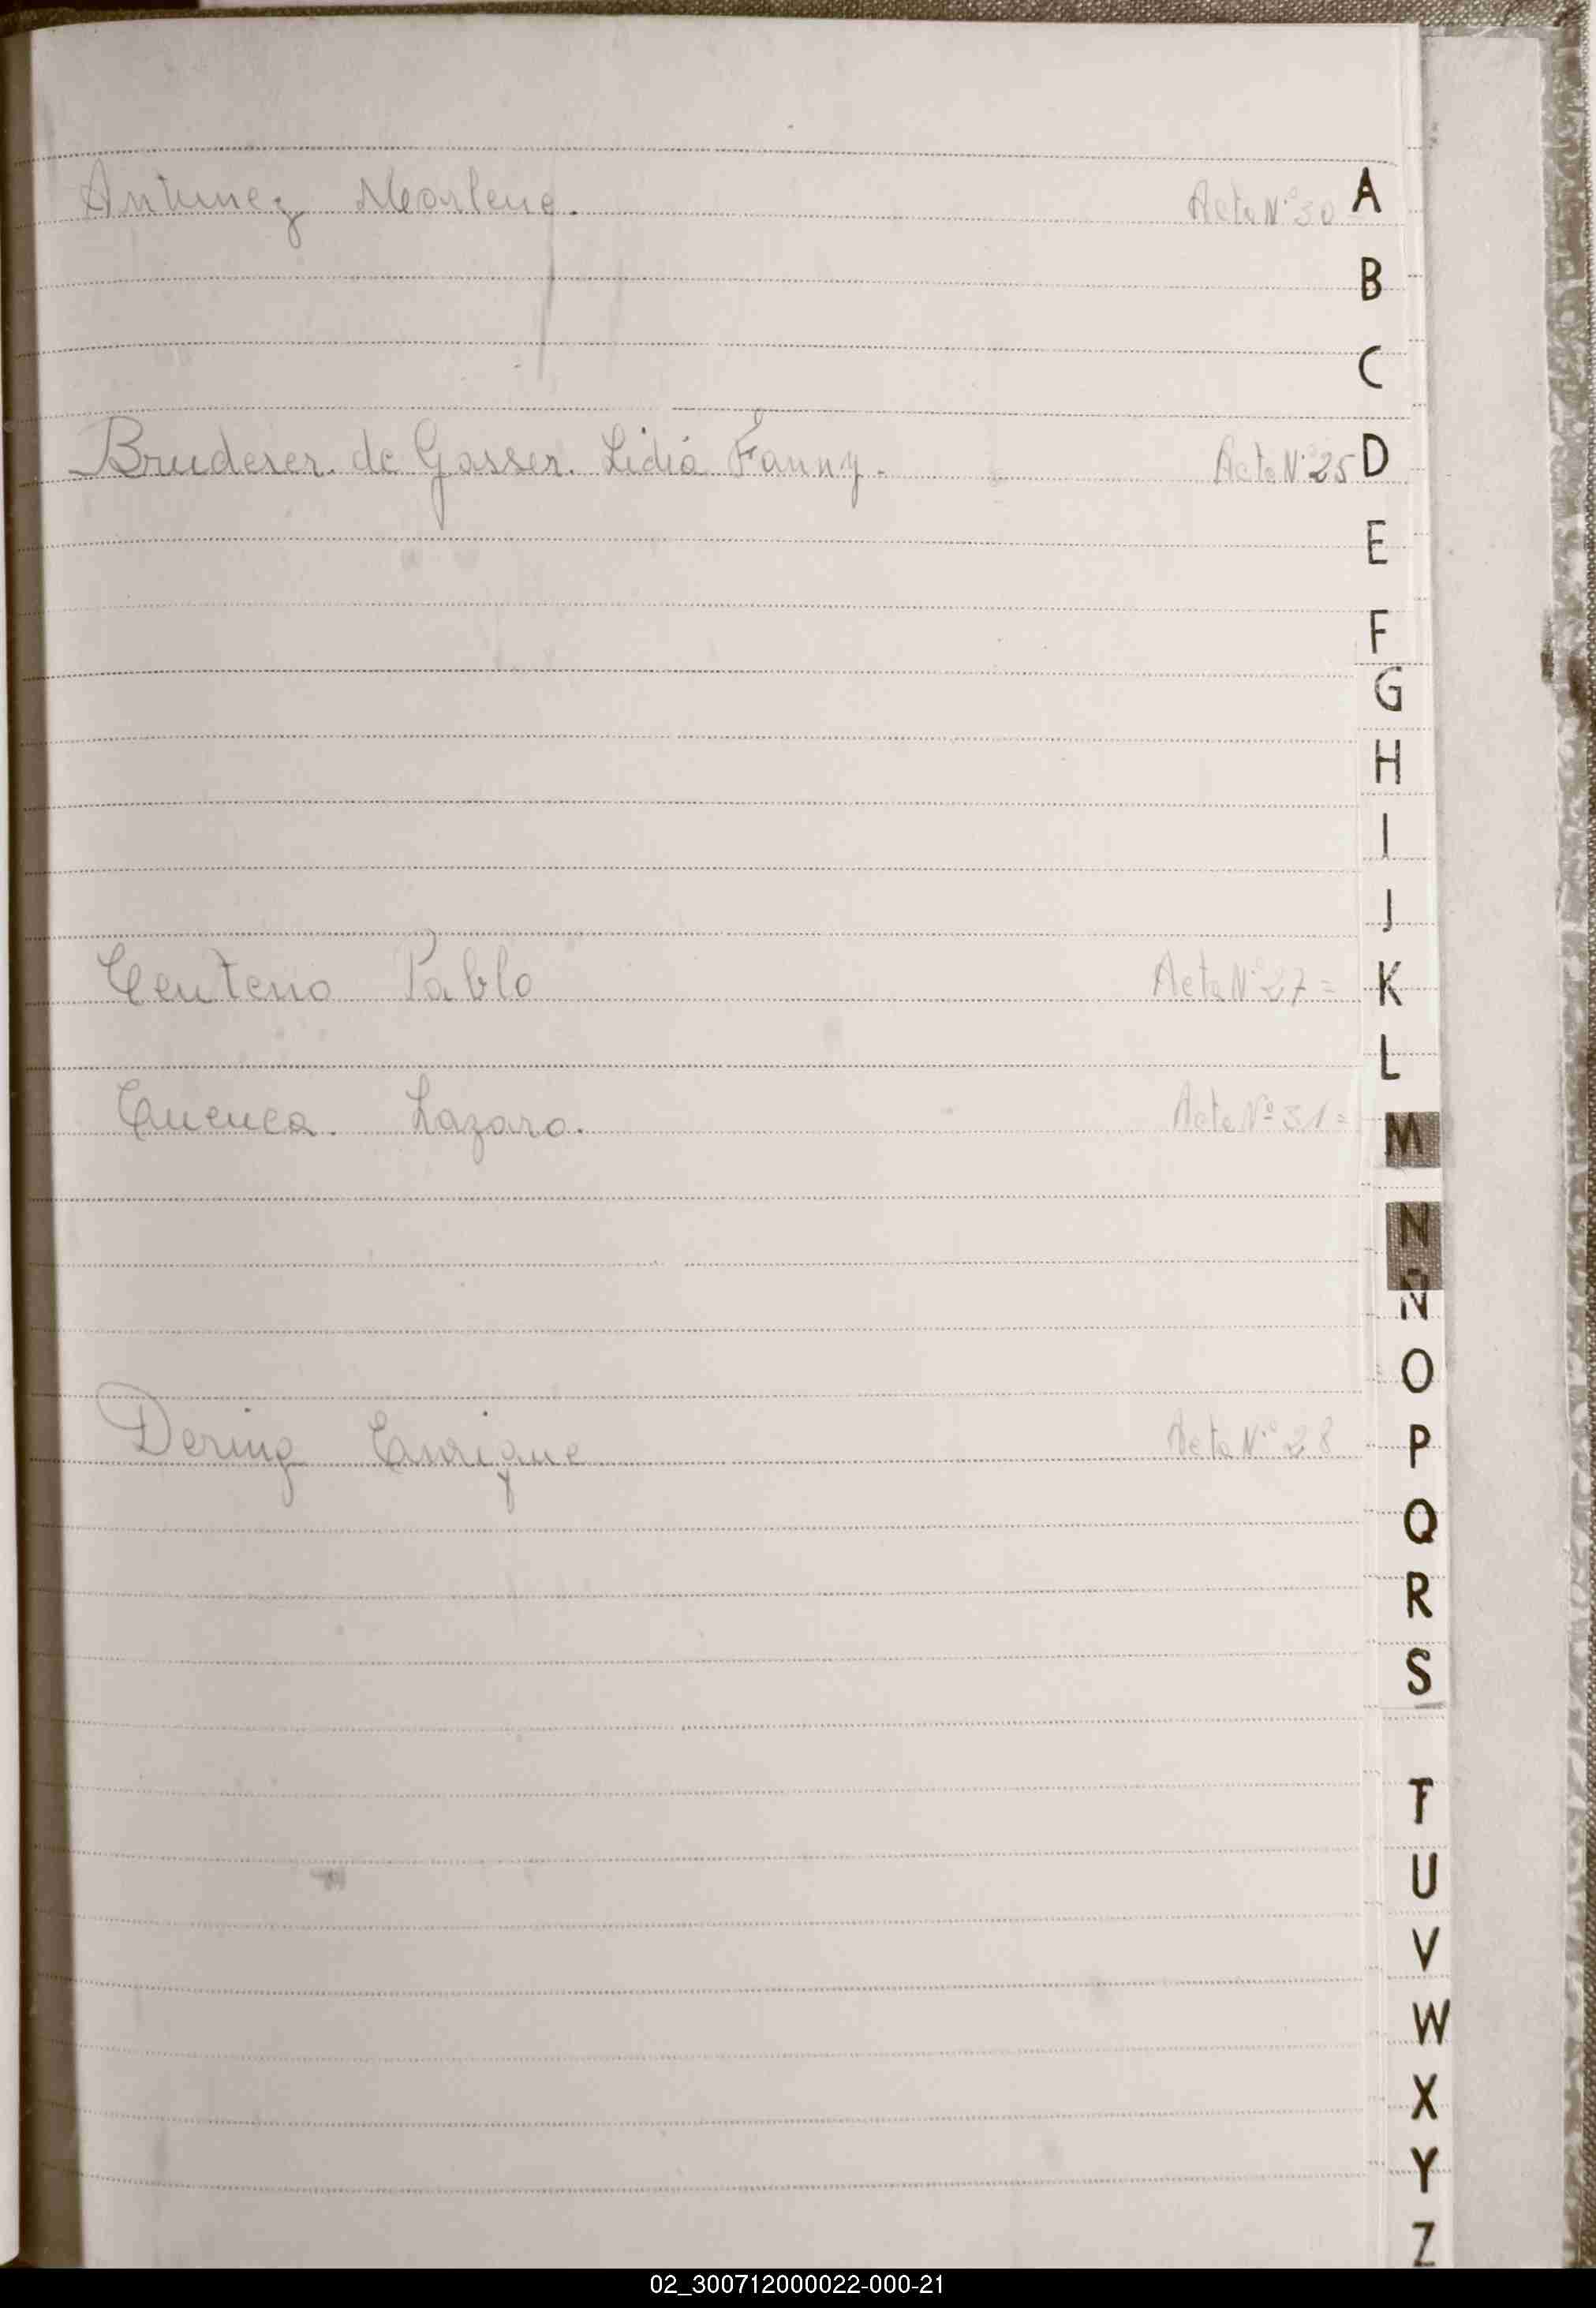 Antunez Marlene. Acta N° 30 A
B
C
Bruderer de Gasser. Lidia Fanny. Acta N° 25 D
E
F
G
H
I
J
Centeno Pablo Acta N° 27= K
L
Cuenca. Lazaro. Acta Nº 31= M
N
Ñ
O
Dering Enrique Acta N° 28 P
Q
R
S
T
U
V
W
X
Y
Z
02_300712000022-000-21